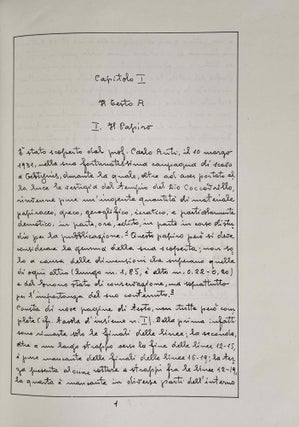 Capitolo I
Il Testo A
I. Il Papiro
È stato scoperto dal prof. Carlo Anti, il 10 marzo
1931, nella sua fortunatissima campagna di scavo
a Tebtynis, durante la quale, oltre ad aver portato al
la luce le vestigia del tempio del Dio Coccodrillo,
rinvenne pure un'ingente quantità di materiale
papiraceo, greco, geroglifico, ieratico, e particolarmente
demotico, in parte, ora, edito, in parte in corso di stu
dio per la pubblicazione. Questo papiro però si deve
considerare la gemma della sua scoperta; non so
lo a causa delle dimensioni che superano quelle
di ogni altro (lungo m. 1,85, è alto m. 0.22-0,20)
e del buono stato di conservazione, ma soprattutto
per l'importanza del suo contenuto.
Consta di nove pagine di testo, non tutte però com
plete (cf. tavola d'insieme n. I). Della prima infatti
sono rimaste solo le finali delle linee; la seconda,
oltre a un largo strappo verso la fine delle linee 12-15,
è pure mancante delle finali delle linee 16-19; la ter
za presenta alcune rotture e strappi fra le linee 12-19,
la quarta è mancante in diverse parti dell'interno
1